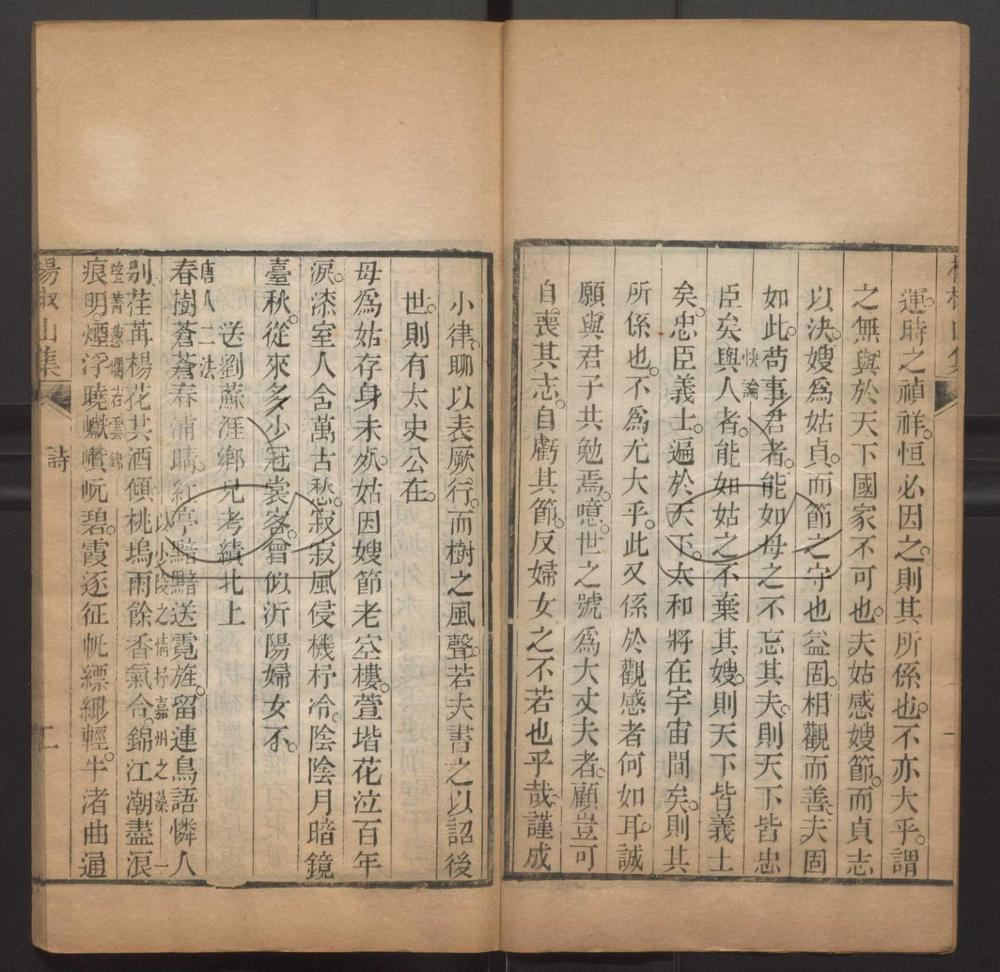 運時之禎祥恒必因之則其所係也不亦大乎謂
之無與於天下國家不可也夫姑感嫂節而貞志
以決嫂為姑貞而節之守也益固相觀而善夫固
如此苟事君者能如母之不忘其夫則天下皆忠
快論
臣矣與人者能如姑之不棄其嫂則天下皆義士
矣忠臣義士遍於天下太和將在宇宙間矣則其
所係也不為尤大乎此又係於觀感者何如耳誠
願與君子共勉焉噫世之號為大丈夫者顧豈可
自喪其志自虧其節反婦女之不若也乎哉謹成
小律聊以表厥行而樹之風聲若夫書之以詔後
世則有太史公在
母為姑存身未死姑因嫂節老空樓萱堦花泣百年
淚漆室人含萬古愁寂寂風侵機杼冷陰陰月暗鏡
臺秋從來多少冠裳客曾似沂陽婦女不
送劉蘇涯鄉兄考績北上
唐人二法
春樹蒼蒼春浦晴紅亭黯黯送霓旌留連鳥語憐人
以少陵之情抒嘉州之藻一
別荏苒楊花共酒傾桃塢雨餘香氣合錦江潮盡浪
痕明煙浮曉巘巑岏碧霞逐征帆縹緲輕牛渚曲通
楊椒山集
詩
二